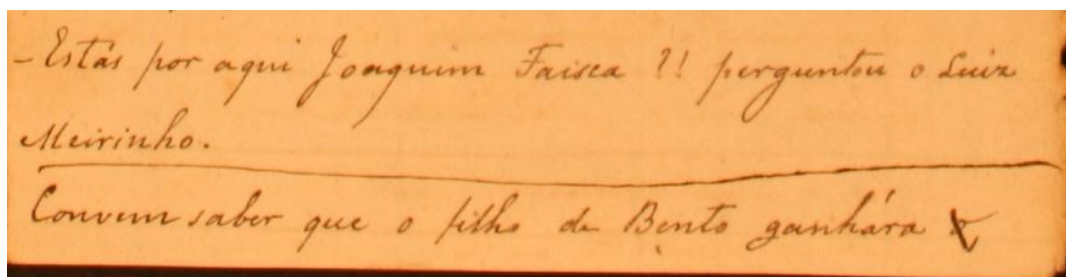 - Estás por aqui Joaquim Faisca ?! perguntou o Luiz
Meirinho.
Convem saber que o filho de Bento ganhára